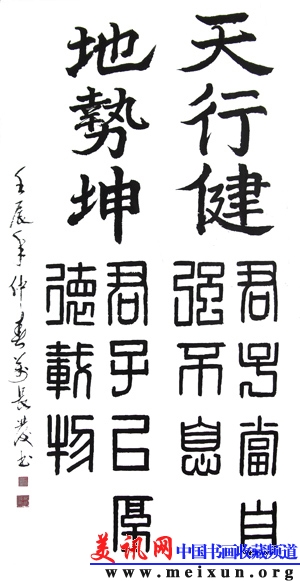 天行健
君子當自
强不息
地勢坤
君子以厚
德載物
壬辰年仲春 長發书
美讯网 中国书画收藏频道
www.meixun.org